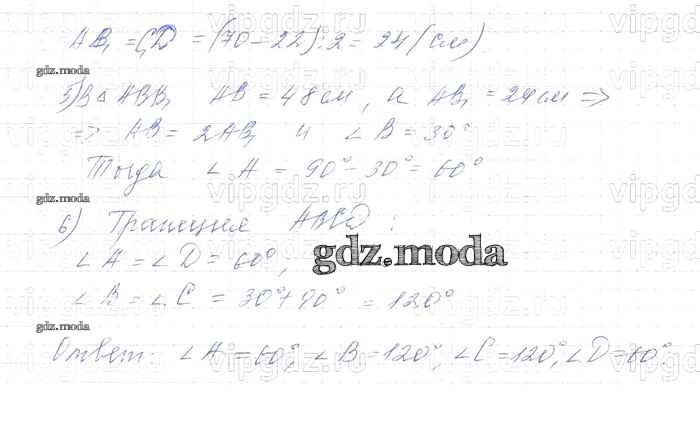 AB₁ = C₁D = (70 − 22) : 2 = 24 (см)
gdz.moda
5) В △ ABB₁ AB = 48 см, а AB₁ = 24 см ⇒
⇒ AB = 2AB₁ и ∠B = 30°
Тогда ∠A = 90° − 30° = 60°
gdz.moda
6) Трапеция ABCD:
∠A = ∠D = 60°,
gdz.moda
∠B = ∠C = 30° + 90° = 120°
gdz.moda
Ответ: ∠A = 60°, ∠B = 120°, ∠C = 120°, ∠D = 60°
vipgdz.ru